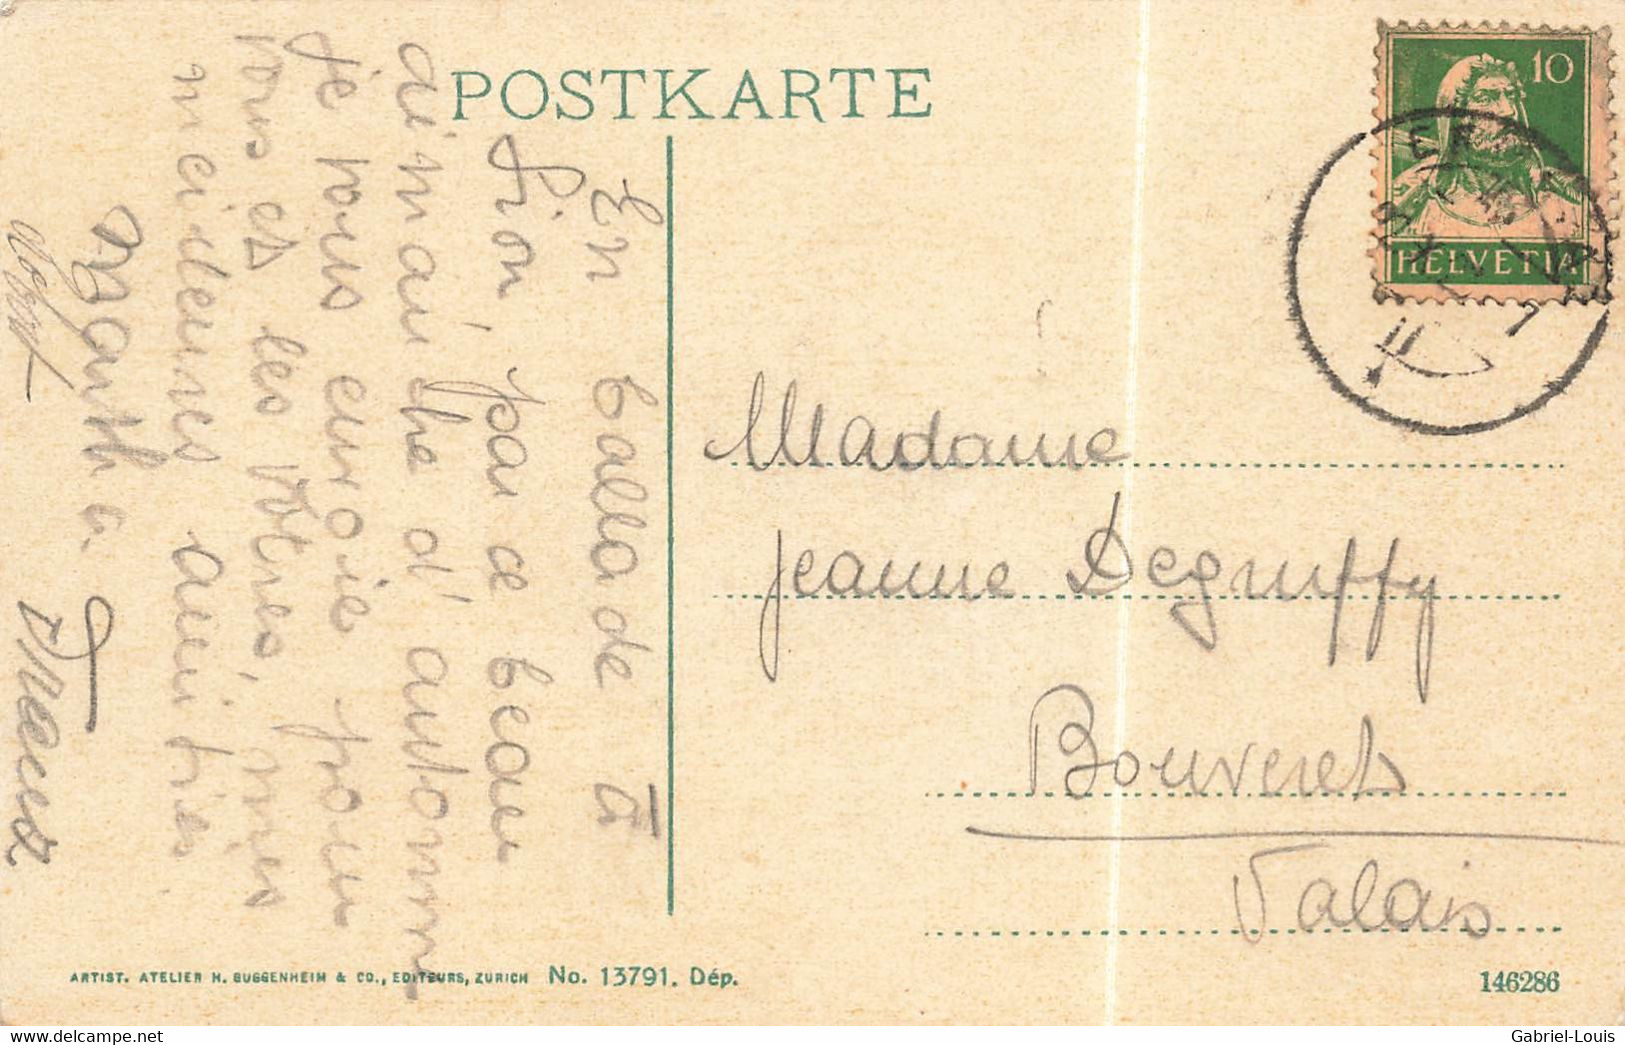 POSTKARTE
En ballade à
Sion, par ce beau
dimanche d'automne
je vous envoie pour
vous et les vôtres, mes
meilleures amitiés
10
HELVETIA
Madame
Jeanne Degruffy
Bouveret
Valais
ARTIST. ATELIER H. GUGGENHEIM & CO., EDITEURS, ZURICH No. 13791. Dép.
146286
https://www.delcampe.net
Gabriel-Louis